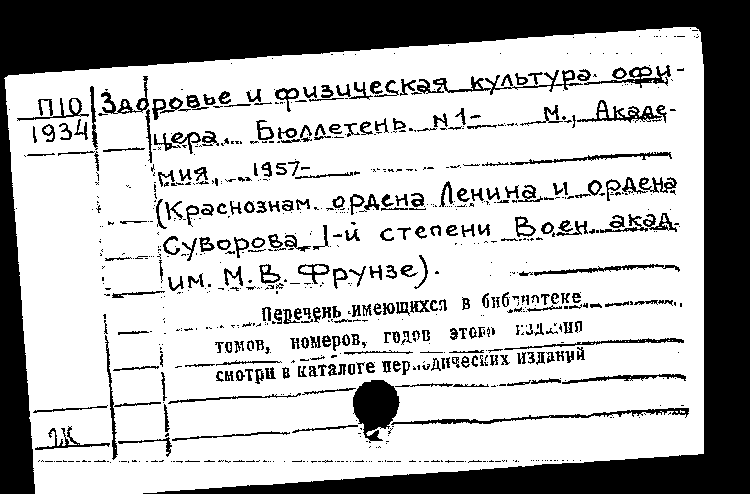 П10
1934
Здоровье и физическая культура офи-
цера. Бюллетень. N1- М., Акаде-
мия, 1957-
(Краснознам. ордена Ленина и ордена
Суворова 1-й степени Воен. акад.
им. М.В. Фрунзе).
Перечень имеющихся в библиотеке
томов, номеров, годов этого издания
смотри в каталоге периодических изданий